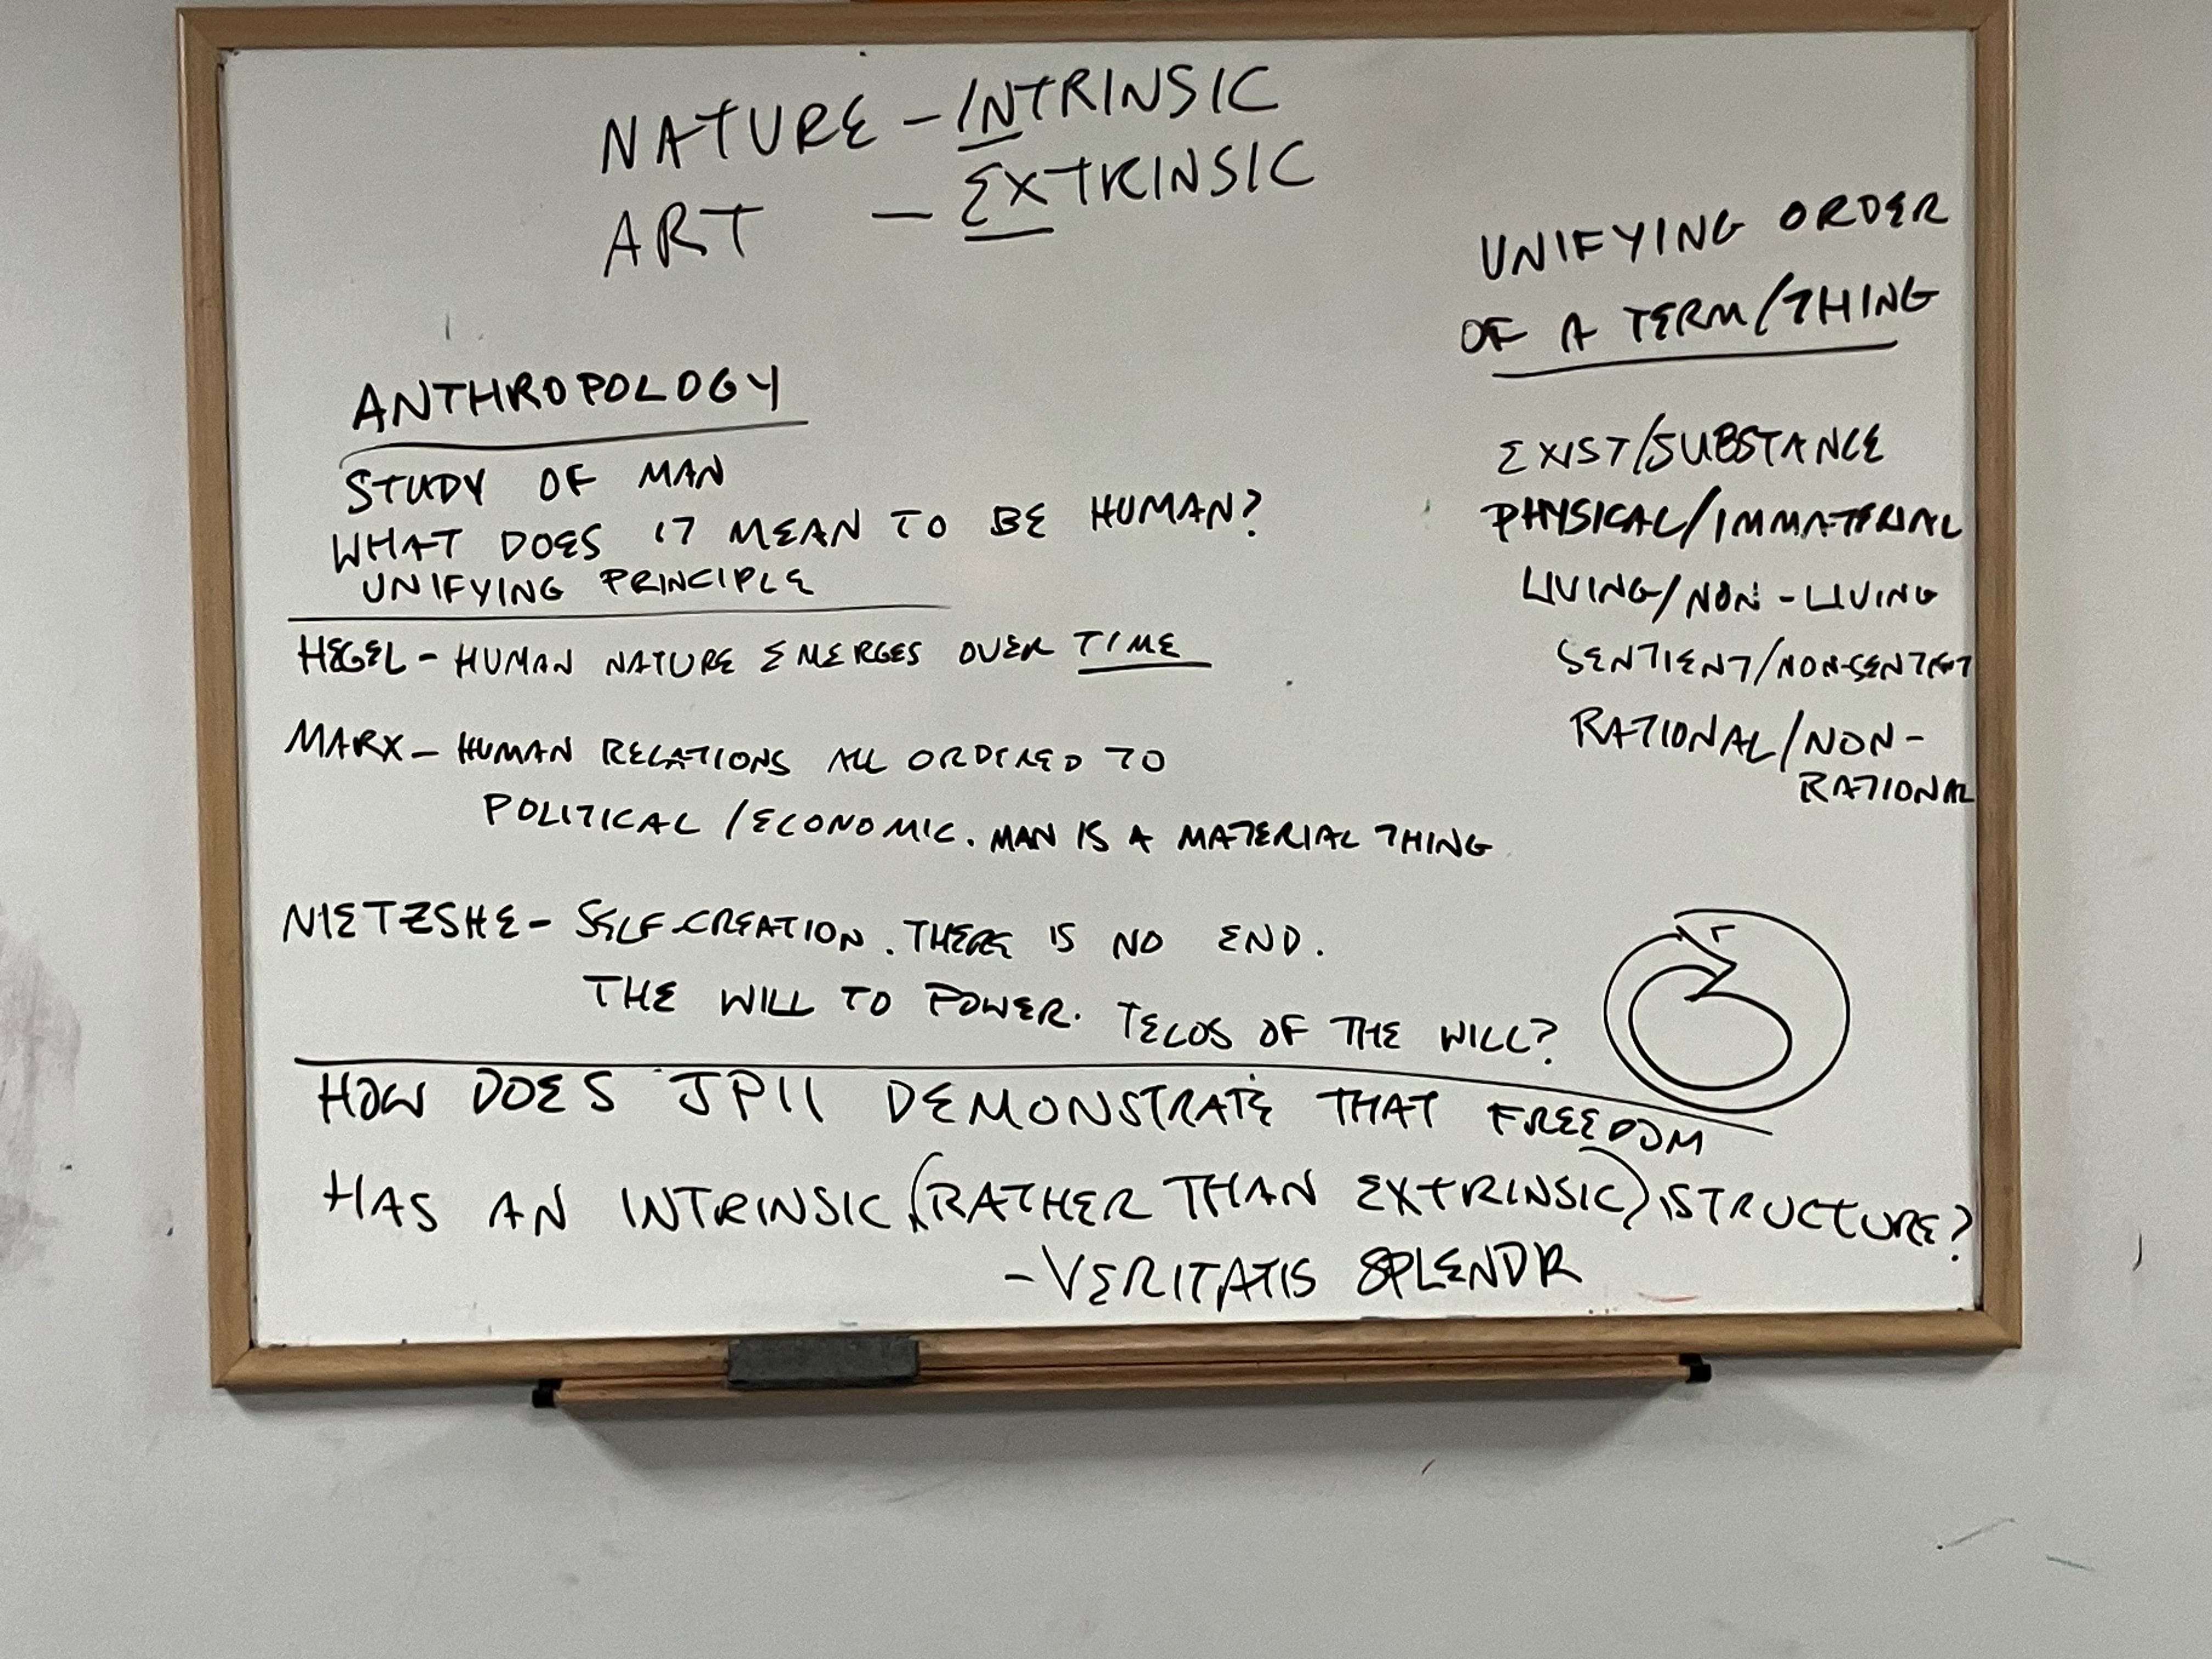 NATURE - INTRINSIC
ART - EXTRINSIC
UNIFYING ORDER
OF A TERM/THING
EXIST/SUBSTANCE
PHYSICAL/IMMATERIAL
LIVING/NON-LIVING
SENTIENT/NON-SENTIENT
RATIONAL/NON-
RATIONAL
ANTHROPOLOGY
STUDY OF MAN
WHAT DOES IT MEAN TO BE HUMAN?
UNIFYING PRINCIPLE
HEGEL - HUMAN NATURE EMERGES OVER TIME
MARX - HUMAN RELATIONS ALL ORDERED TO
POLITICAL/ECONOMIC. MAN IS A MATERIAL THING
NIETZSHE - SELF-CREATION. THERE IS NO END.
THE WILL TO POWER. TELOS OF THE WILL?
HOW DOES JPII DEMONSTRATE THAT FREEDOM
HAS AN INTRINSIC (RATHER THAN EXTRINSIC) STRUCTURE?
- VERITATIS SPLENDR